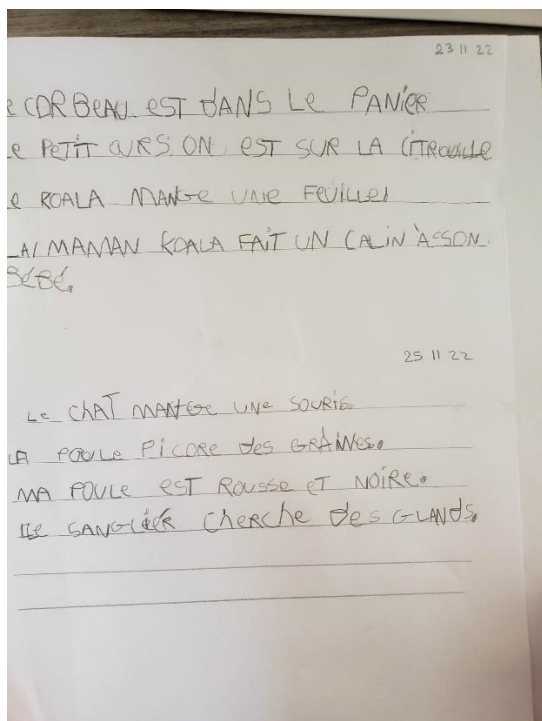 23 11 22
e CORBEAU EST dANS LE PANiER
e PETiT OURSON EST SUR LA CiTROUiLLE
e KOALA MANGE UNE FEUiLLE
LA MAMAN KOALA FAiT UN CALiN À SON
BÉBÉ.
25 11 22
Le ChAT MANGE UNe SOURiS.
LA POULE PiCORE des GRAiNes.
MA POULE EST ROUSSE ET NOiRE.
Le SANGLiER CheRChe des GLANds.